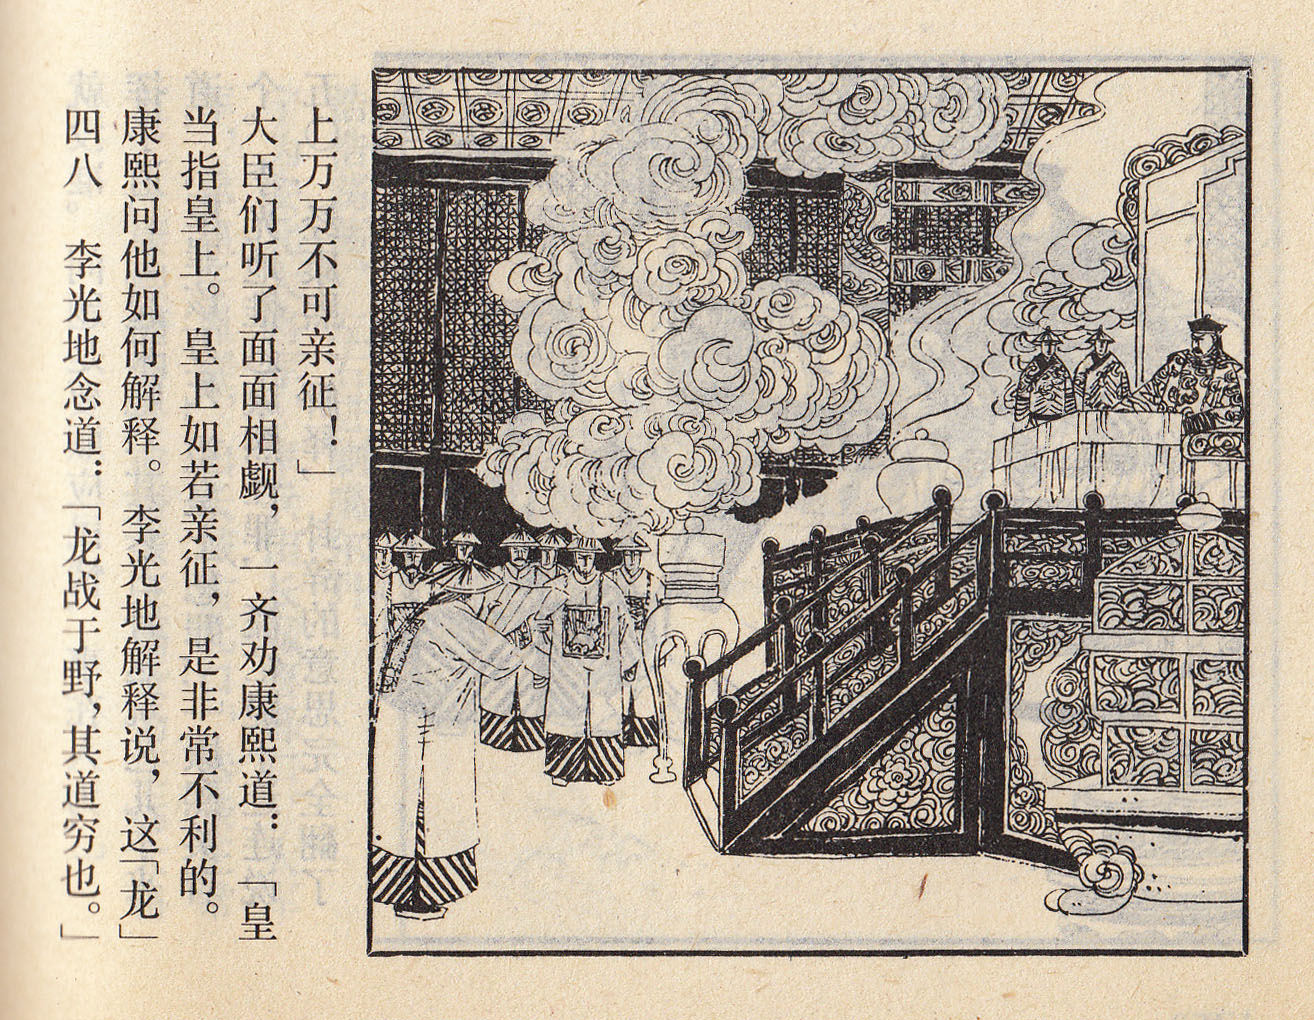 四八。李光地念道：「龙战于野，其道穷也。」
康熙问他如何解释。李光地解释说，这「龙」
当指皇上。皇上如若亲征，是非常不利的。
大臣们听了面面相觑，一齐劝康熙道：「皇
上万万不可亲征！」